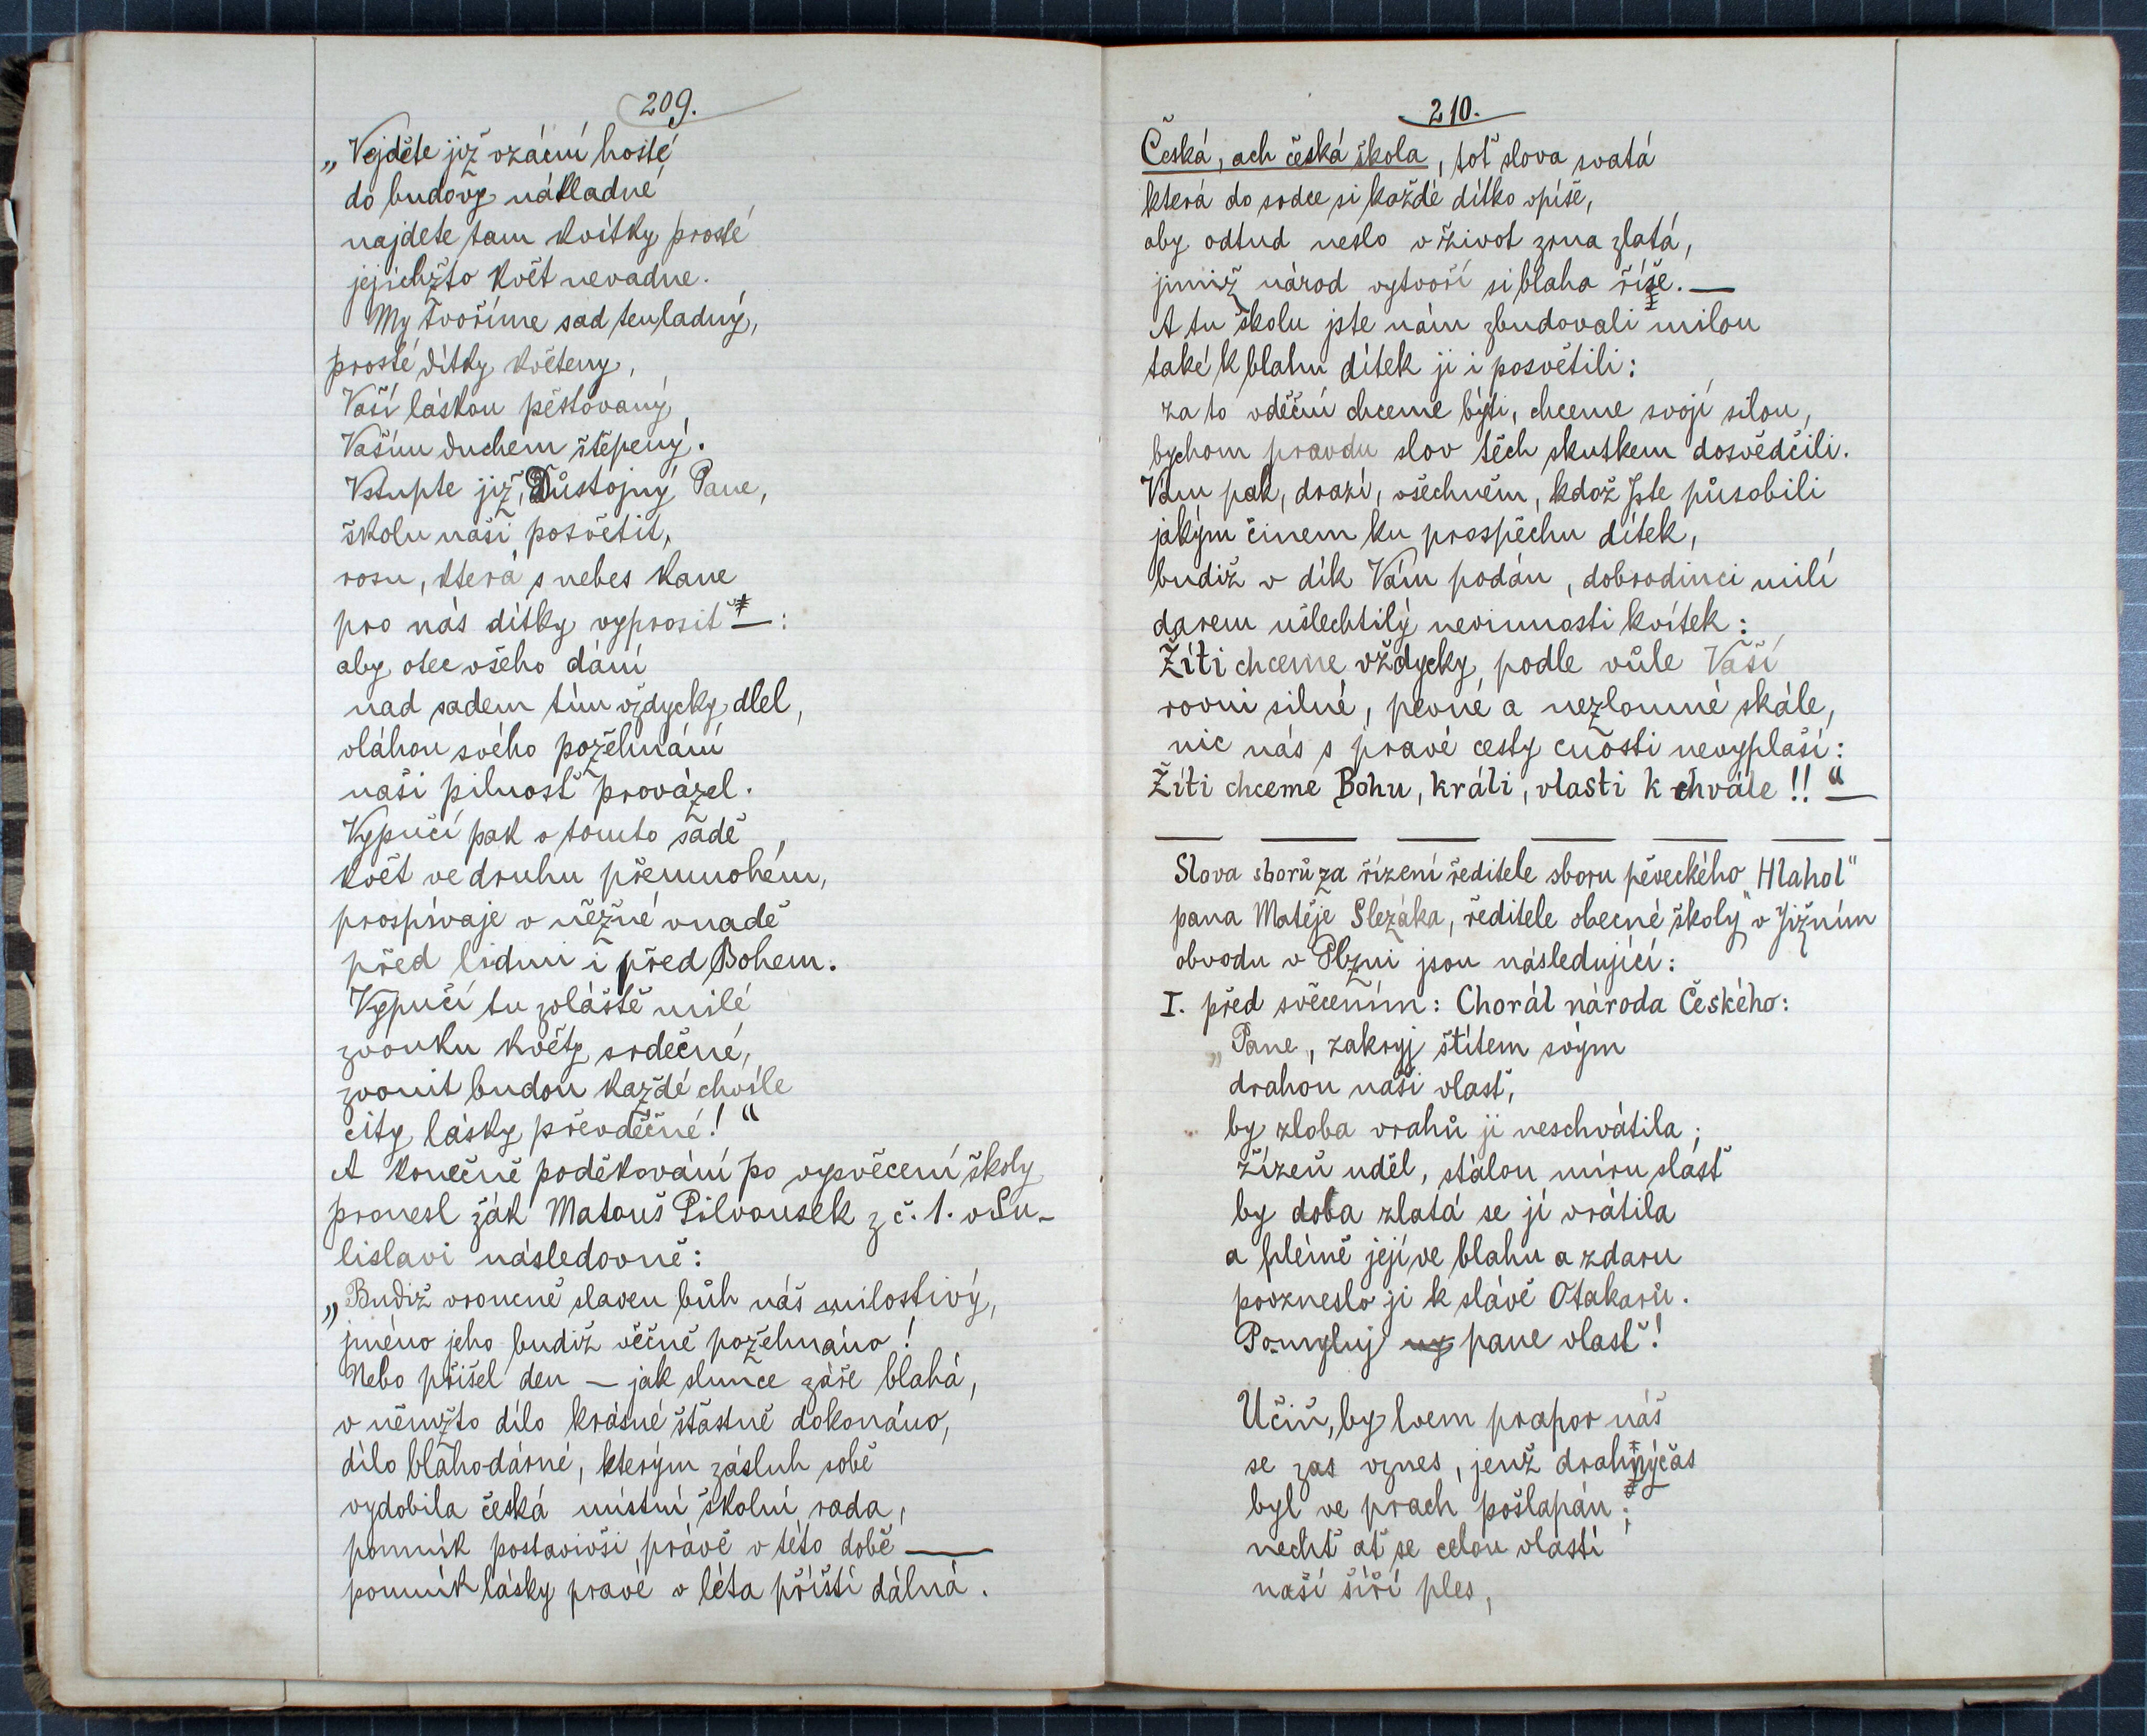 209.
„Vejděte již vzácní hosté
do budovy nákladné
najdete tam kvítky prosté
jejichžto květ nevadne.
My tvoříme sad ten ladný,
prosté dítky květeny,
Vaší láskou pěstovaný
Vašim duchem štěpený.
Vstupte již, Důstojný Pane,
školu naši posvětit,
rosu, která s nebes kane
pro nás dítky vyprosit —:
aby otec všeho dání
nad sadem tím vždycky dlel,
vláhou svého požehnání
naši pilnosť provázel.
Vypučí pak v tomto sadě,
květ ve druhu přemnohém,
prospívaje v něžné vnadě
před lidmi i před Bohem.
Vypučí tu zvláště milé
zvonku květy srdečné,
zvonit budou každé chvíle
city lásky převděčné!“
A konečně poděkování po vysvěcení školy
pronesl žák Matouš Pilvousek z č. 1. v Su-
lislavi následovně:
„Budiž vroucně slaven bůh náš milostivý,
jméno jeho budiž věčně požehnáno!
Nebo přišel den — jak slunce záře blahá,
v němžto dílo krásné šťastně dokonáno,
dílo blahodárné, kterým zásluh sobě
vydobila česká místní školní rada,
pomník postavivši právě v této době —
pomník lásky pravé v léta příští dálná.
210.
Česká, ach česká škola, toť slova svatá
která do srdce si každé dítko vpíše,
aby odtud neslo v život zrna zlatá,
jimiž národ vytvoří si blaha říše. —
A tu školu jste nám zbudovali milou
také k blahu dítek ji i posvětili:
za to vděčni chceme býti, chceme svojí silou,
bychom pravdu slov těch skutkem dosvědčili.
Vám pak, drazí, všechněm, kdož Jste působili
jakým činem ku prospěchu dítek,
budiž v dík Vám podán, dobrodinci milí
darem ušlechtilý nevinnosti kvítek:
Žíti chceme vždycky podle vůle Vaší
rovni silné, pevné a nezlomné skále,
nic nás s pravé cesty cnosti nevyplaší:
Žíti chceme Bohu, králi, vlasti k chvále!!“—
Slova sborů za řízení ředitele sboru pěveckého „Hlahol“
pana Matěje Slezáka, ředitele obecné školy v Jižním
obvodu v Plzni jsou následující:
I. před svěcením: Chorál národa Českého:
„Pane, zakryj štítem svým
drahou naši vlasť,
by zloba vrahů ji neschvátila;
žízeň uděl, stálou míru slásť
by doba zlatá se jí vrátila
a plémě její ve blahu a zdaru
povzneslo ji k slávě Otakarů.
Pomyluj ny pane vlasť!
Učiň, by lvem prapor náš
se zas vznes, jenž drahný čas
byl ve prach pošlapán;
nechť ať se celou vlastí
naší šíří ples,